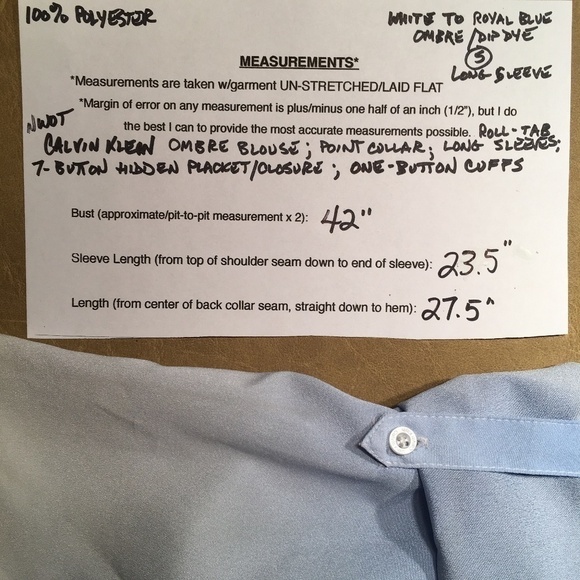 100% POLYESTER
WHITE TO ROYAL BLUE
OMBRE/DIPDYE
S
LONG SLEEVE
MEASUREMENTS*
*Measurements are taken w/garment UN-STRETCHED/LAID FLAT
*Margin of error on any measurement is plus/minus one half of an inch (1/2"), but I do
the best I can to provide the most accurate measurements possible. ROLL-TAB
NWOT
CALVIN KLEIN OMBRE BLOUSE; POINT COLLAR; LONG SLEEVES;
7-BUTTON HIDDEN PLACKET/CLOSURE; ONE-BUTTON CUFFS
Bust (approximate/pit-to-pit measurement x 2): 42"
Sleeve Length (from top of shoulder seam down to end of sleeve): 23.5"
Length (from center of back collar seam, straight down to hem): 27.5"